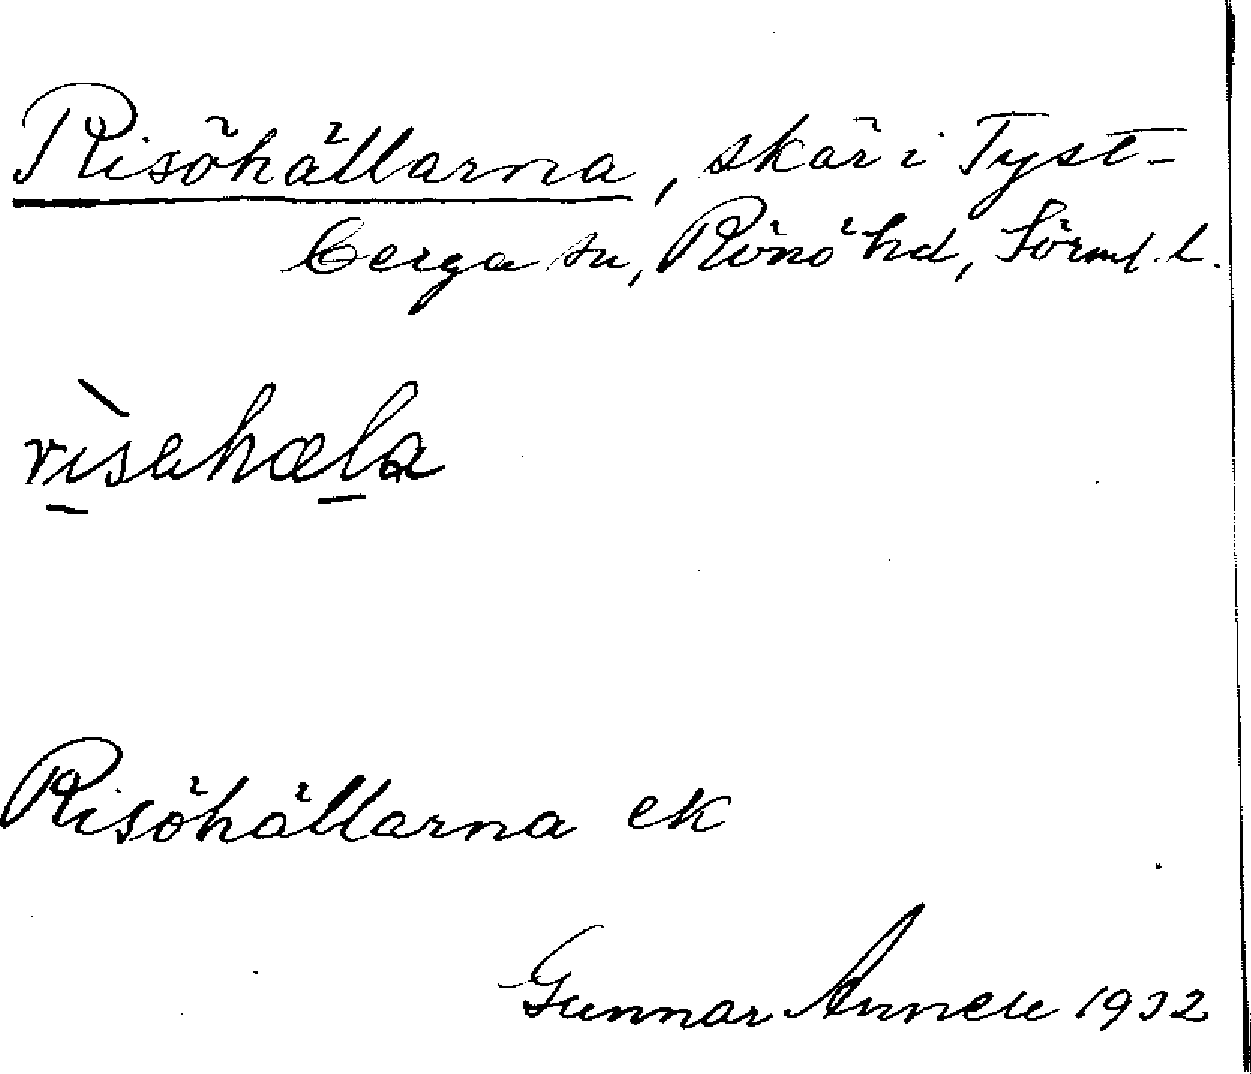 Risöhällarna, skär i Tyst-
berga sn, Rönö hd, Sörml. l.
Risöhällarna ek
Gunnar 1932